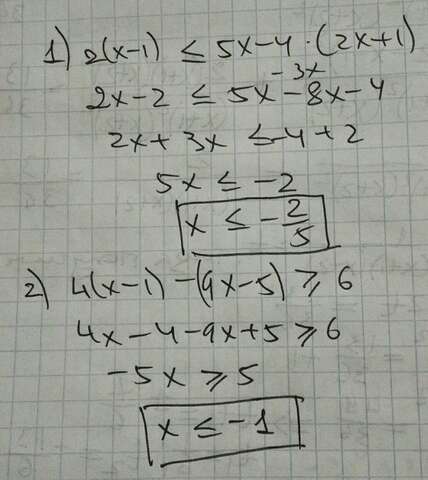 1) 2(x-1) ≤ 5x-4·(2x+1)
-3x
2x-2 ≤ 5x-8x-4
2x+3x ≤ -4+2
5x ≤ -2
x ≤ -2/5
2) 4(x-1)-(9x-5) ≥ 6
4x-4-9x+5 ≥ 6
-5x ≥ 5
x ≤ -1